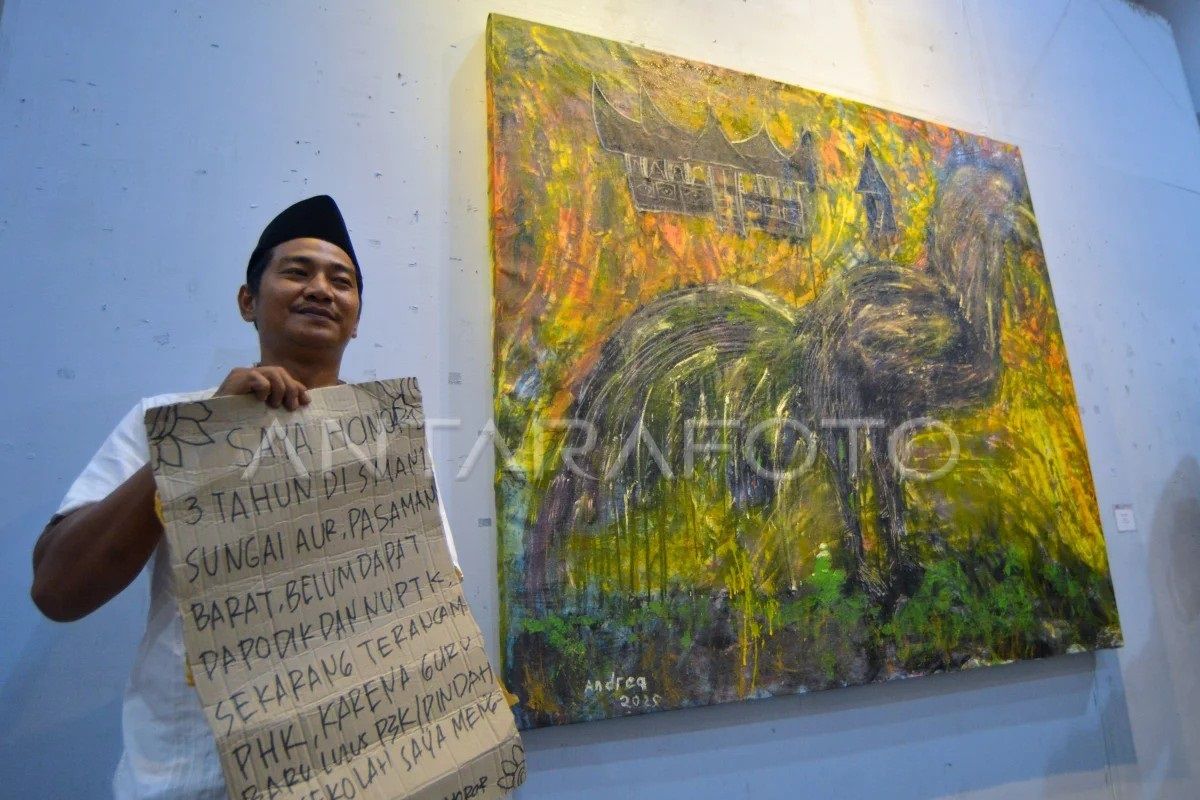 SAYA HONOR
3 TAHUN DI SMAN 1
SUNGAI AUR, PASAMAN
BARAT, BELUM DAPAT
DAPODIK DAN NUPTK,
SEKARANG TERANCAM
PHK, KARENA GURU
BARU LULUS P3K/PINDAH
SEKOLAH SAYA MENG
HONOR
ANTARAFOTO
Andrea
2025